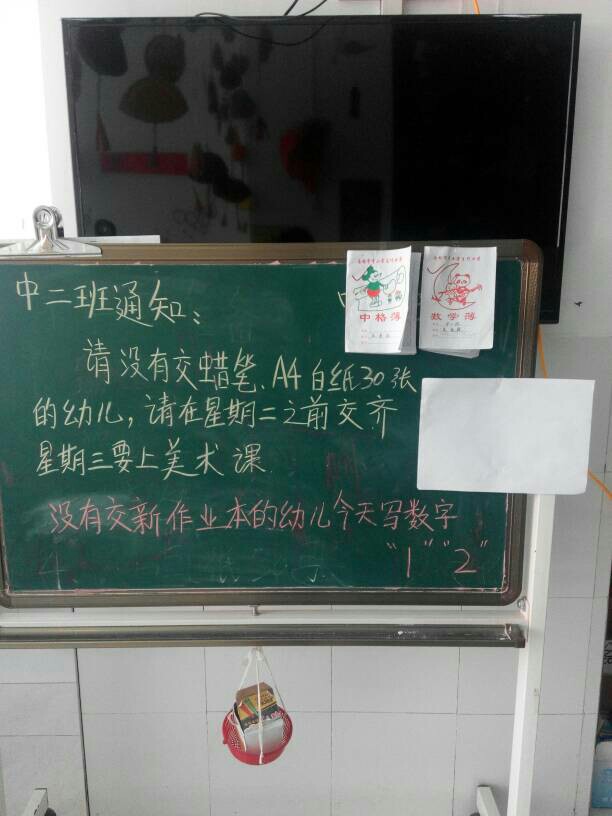 中格簿
数学簿
中二班通知：
请没有交蜡笔、A4白纸30张
的幼儿，请在星期二之前交齐
星期三要上美术课.
没有交新作业本的幼儿今天写数字
"1""2"